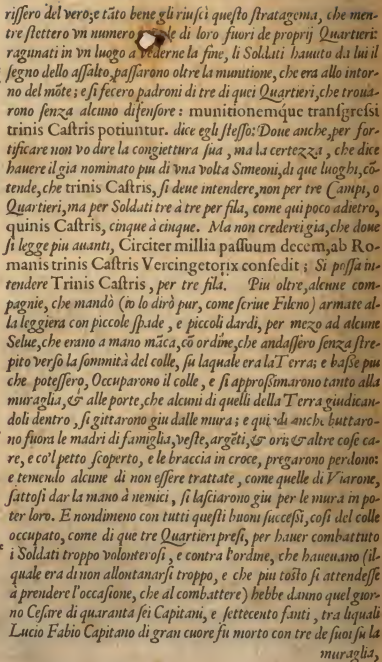 rissero del vero; e tãto bene gli riusci questo stratagema, che men-
tre stettero vn numero di loro fuori de proprij Quartieri:
ragunati in vn luogo a vederne la fine, li Soldati hauuto da lui il
segno dello assalto, passarono oltre la munitione, che era allo intor-
no del mõte; e si fecero padroni di tre di quei Quartieri, che troua-
rono senza alcuno difensore: munitionemque transgressi
trinis Castris potiuntur. dice egli stesso: Doue anche, per for-
tificare non vo dire la congiettura sua, ma la certezza, che dice
hauere il gia nominato piu di vna volta Simeoni, di que luoghi, cõ-
tende, che trinis Castris, si deue intendere, non per tre Campi, o
Quartieri, ma per Soldati tre à tre per fila, come qui poco adietro,
quinis Castris, cinque à cinque. Ma non crederei gia, che doue
si legge piu auanti, Circiter millia passuum decem, ab Ro-
manis trinis Castris Vercingetorix consedit; Si possa in-
tendere Trinis Castris, per tre fila. Piu oltre, alcune com-
pagnie, che mandò (io lo dirò pur, come scriue Fileno) armate al-
la leggiera con piccole spade, e piccoli dardi, per mezo ad alcune
Selue, che erano a mano mãca, cõ ordine, che andassero senza stre-
pito verso la sommità del colle, su laquale era la Terra; e basse piu
che potessero, Occuparono il colle, e si approssimarono tanto alla
muraglia, & alle porte, che alcuni di quelli della Terra giudican-
doli dentro, si gittarono giu dalle mura; e qui di anche buttaro-
no fuora le madri di famiglia, veste, argẽti, & ori; & altre cose ca-
re, e co'l petto scoperto, e le braccia in croce, pregarono perdono:
e temendo alcune di non essere trattate, come quelle di Viarone,
fattosi dar la mano à nemici, si lasciarono giu per le mura in po-
ter loro. E nondimeno con tutti questi buoni successi, cosi del colle
occupato, come di que tre Quartieri presi, per hauer combattuto
i Soldati troppo volonterosi, e contra l'ordine, che haueuano (il-
quale era di non allontanarsi troppo, e che piu tosto si attendesse
à prendere l'occasione, che al combattere) hebbe danno quel gior-
no Cesare di quaranta sei Capitani, e settecento fanti, tra liquali
Lucio Fabio Capitano di gran cuore fu morto con tre de suoi su la
muraglia,